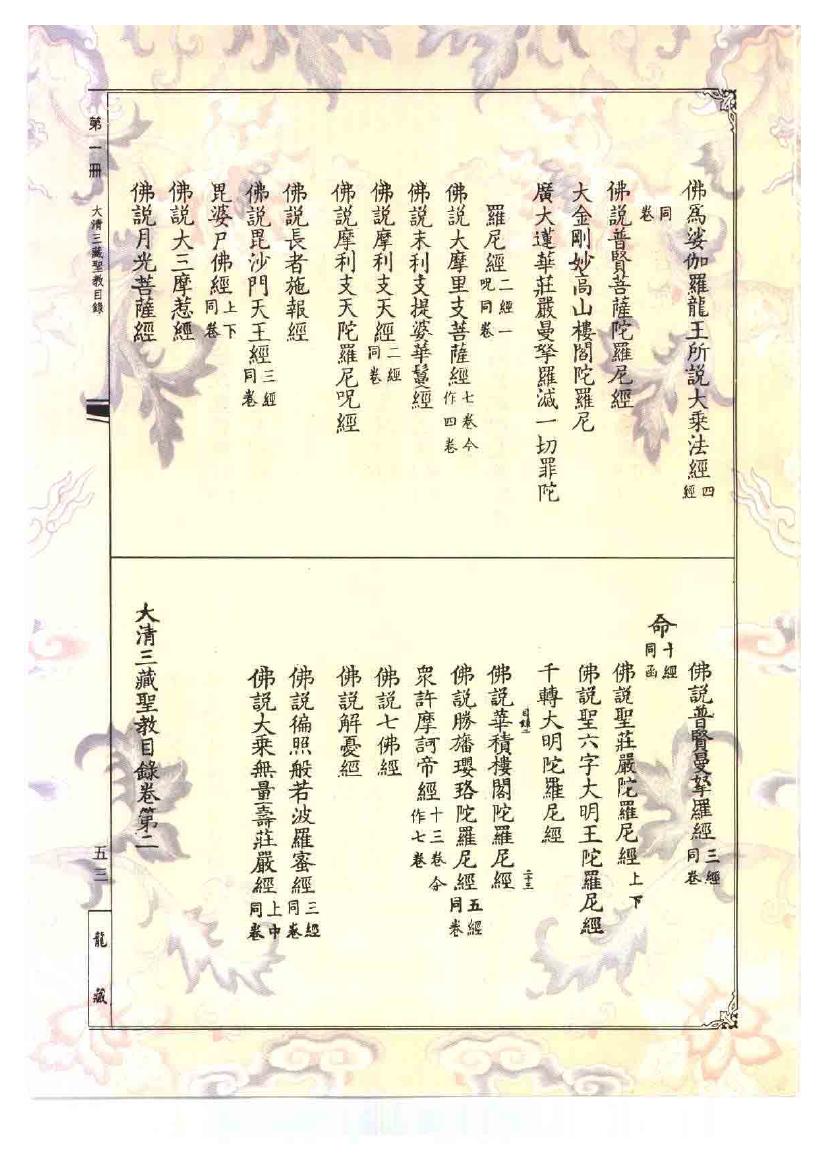 佛爲娑伽羅龍王所説大乘法經四經
同卷
佛説普賢菩薩陀羅尼經
大金剛妙高山樓閣陀羅尼
廣大蓮華莊嚴曼拏羅滅一切罪陀
羅尼經二經一呪同卷
佛説大摩里支菩薩經七卷今作四卷
佛説末利支提婆華鬘經
佛説摩利支天經二經同卷
佛説摩利支天陀羅尼呪經
佛説長者施報經
佛説毘沙門天王經三經同卷
毘婆尸佛經上下同卷
佛説大三摩惹經
佛説月光菩薩經
佛説普賢曼拏羅經三經同卷
命十經同函
佛説聖莊嚴陀羅尼經上下
佛説聖六字大明王陀羅尼經
千轉大明陀羅尼經
佛説華積樓閣陀羅尼經
佛説勝旛瓔珞陀羅尼經五經同卷
衆許摩訶帝經十三卷今作七卷
佛説七佛經
佛説解憂經
佛説徧照般若波羅蜜經三經同卷
佛説大乘無量壽莊嚴經上中同卷
大清三藏聖教目錄卷第二
第一冊
大清三藏聖教目錄
五三
龍藏